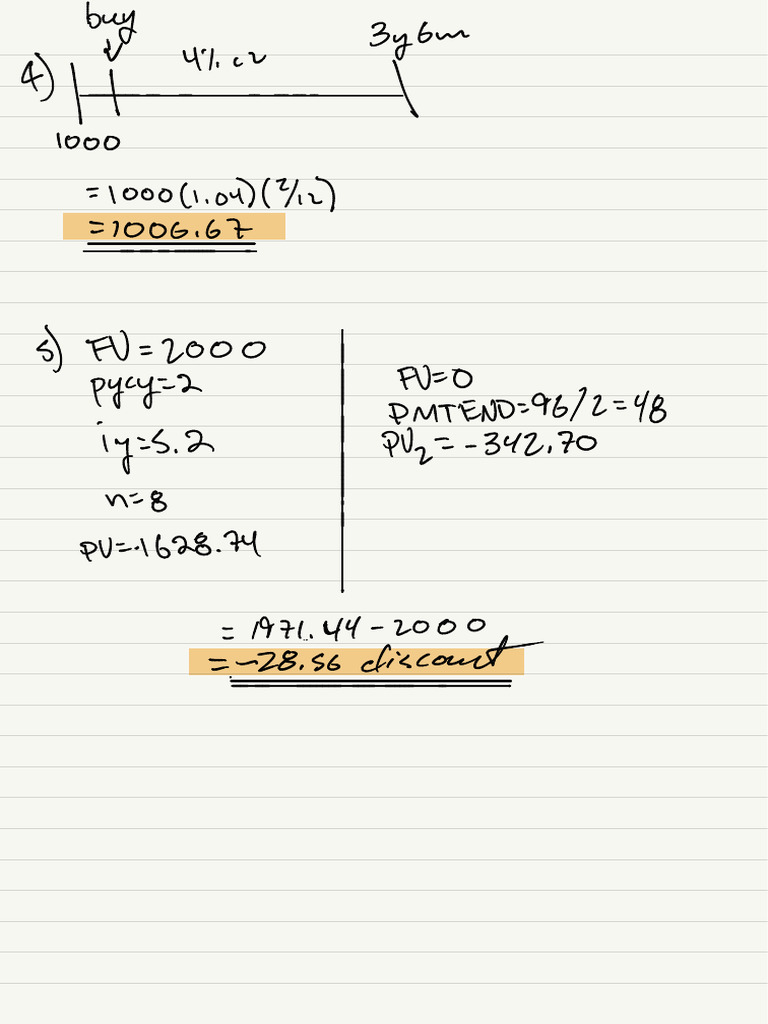 buy
4) 4% c2 3y6m
1000
=1000(1.04)(2/12)
=1006.67
5) FV=2000
pycy=2
iy=5.2
n=8
PV=-1628.74
FV=0
PMTEND=96/2=48
PV2=-342.70
=1971.44-2000
=-28.56 discount